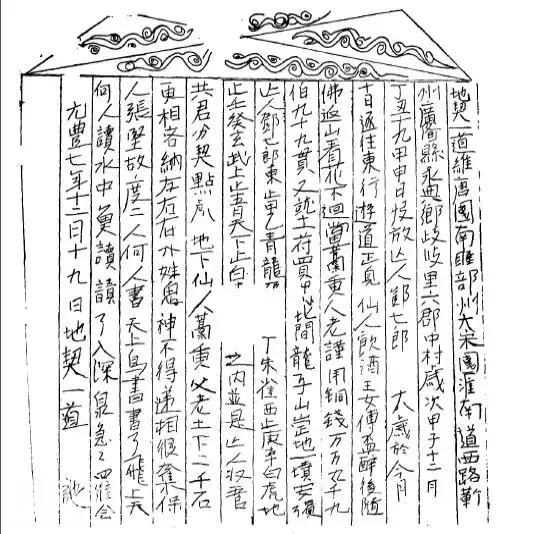 地契一道維唐國南贍部州大宋國淮南道西路蘄
州廣濟縣永興鄉歧里六郡中村歲次甲子十二月
丁丑十九甲申日殁放亡人郭七郎 大歲於今月
十日逐往東行遊道正見仙人飲酒玉女傳盃醉後隨
佛返山看花不迴當蒿里人老謹用銅錢万万九千九
伯九十九貫又就土府買地間龍子山崗地一墳安殯
亡人郭七郎東止甲乙青龍 丁朱雀西止庚辛白虎地
止壬癸玄武上止青天下止白 之內並是亡人收管
共君分契點處地下仙人蒿里父老土下二千石
更相各納左右石外姝鬼神不得递相侵奪保
人張堅故度二人何人書天上鳥書書了飛上天
何人讀水中魚讀讀了入深泉急々如律令
元豐七年十二月十九日地契一道